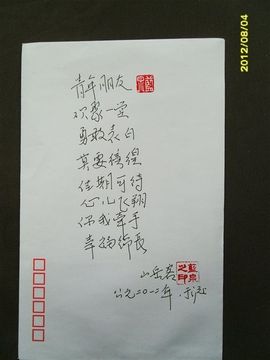 青年朋友
欢聚一堂
勇敢表白
莫要徬徨
佳期可待
心儿飞翔
你我牵手
幸福绵長
山岳
之印
公元二〇一二年
2012/08/04